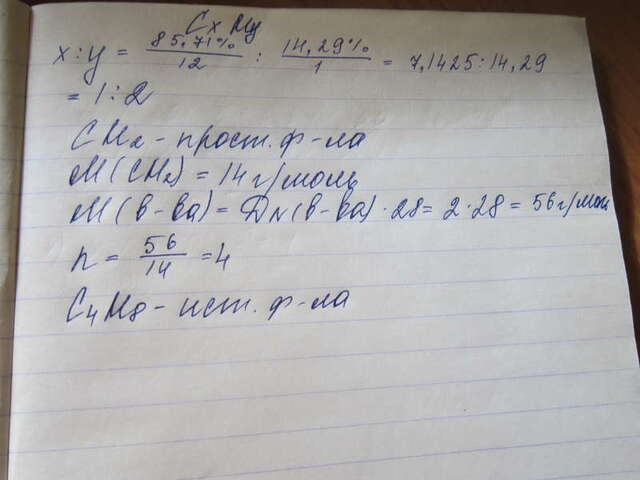 CxHy
x:y = 85,71% / 12 : 14,29% / 1 = 7,1425:14,29
= 1:2
CH2 - прост. ф-ла
M(CH2) = 14 г/моль
M(в-ва) = DN(в-ва)·28 = 2·28 = 56 г/моль
n = 56/14 = 4
C4H8 - ист. ф-ла